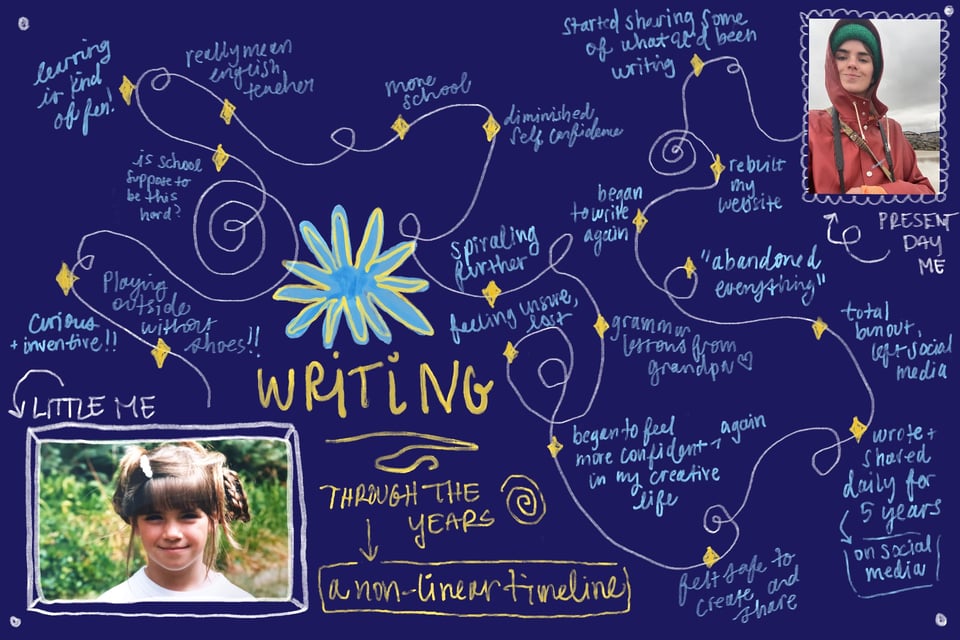 started sharing some
of what I'd been
writing
learning
is kind
of fun!
really mean
english
teacher
more
school
diminished
self confidence
is school
suppose to
be this
hard?
rebuilt
my
website
began
to write
again
PRESENT
DAY
ME
spiraling
further
"abandoned
everything"
Playing
outside
without
shoes!!
curious
+ inventive!!
feeling unsure,
lost
grammar
lessons from
grandpa ♡
total
burnout,
left social
media
WRITING
LITTLE ME
began to feel
more confident → again
in my creative
life
wrote +
shared
daily for
5 years
on social
media
THROUGH THE
YEARS
a non-linear timeline
felt safe to
create and
share